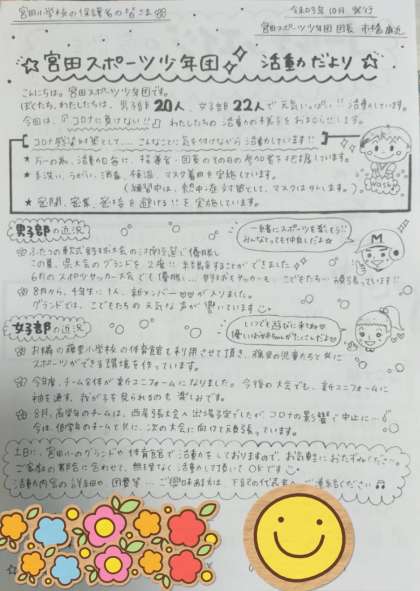 宮田小学校の保護者の皆さま
令和3年 10月 発行
宮田スポーツ少年団 団長
☆宮田スポーツ少年団 活動だより☆
こんにちは。宮田スポーツ少年団です。
ぼくたち、わたしたちは、男子部 20人、女子部 22人で 元気いっぱい!! 活動しています。
今回は、『コロナに負けない!!』 わたしたちの 活動の様子を お知らせします。
コロナ感染対策として…、こんなことに気を付けながら 活動しています!!
★ 万一の為、活動日毎に、指導者・団員の その日の参加者を 把握しています。
★ 手洗い、うがい、消毒、検温、マスク着用を 実施しています。
(練習中は、熱中症対策として、マスクは外します。)
★ 密閉、密集、密接 を 避ける!! を 実施しています。
Wash
男子部 の近況
一緒にスポーツを楽しもう!!
みんなとても仲良しだよ☆
M
優勝し
この夏、県大会のグランドを 2度!! 走ることができました
6月の スポーツサッカー大会でも 優勝し、野球もサッカーも、こどもたち 頑張っています!!
8月から、1年生 1人、新メンバー が入りました。
グランドでは、こどもたちの 元気な声が 響いています
女子部 の近況
いつでも遊びに来てね
優しいお姉ちゃんがたくさんだよ
お隣の 小学校の体育館も利用させて頂き、 の児童たちと共に
スポーツができる環境を作っています。
今年度、チーム全体が 新ユニフォームになりました。 今後の大会でも、新ユニフォームに
袖を通す、我が子を見られるのも 楽しみです。
8月、高学年のチームは、西尾張大会へ出場予定でしたが コロナの影響で 中止に…
今は、低学年のチームと共に、次の大会に向けて頑張っています。
土日に、宮田小のグランドや体育館で 活動をしておりますので、お気軽におたずねください。
ご家庭の都合に合わせて、無理なく 活動して頂いて OKです
活動内容の詳細や、団費等… ご興味あれば、下記の代表者へ ご連絡ください♫